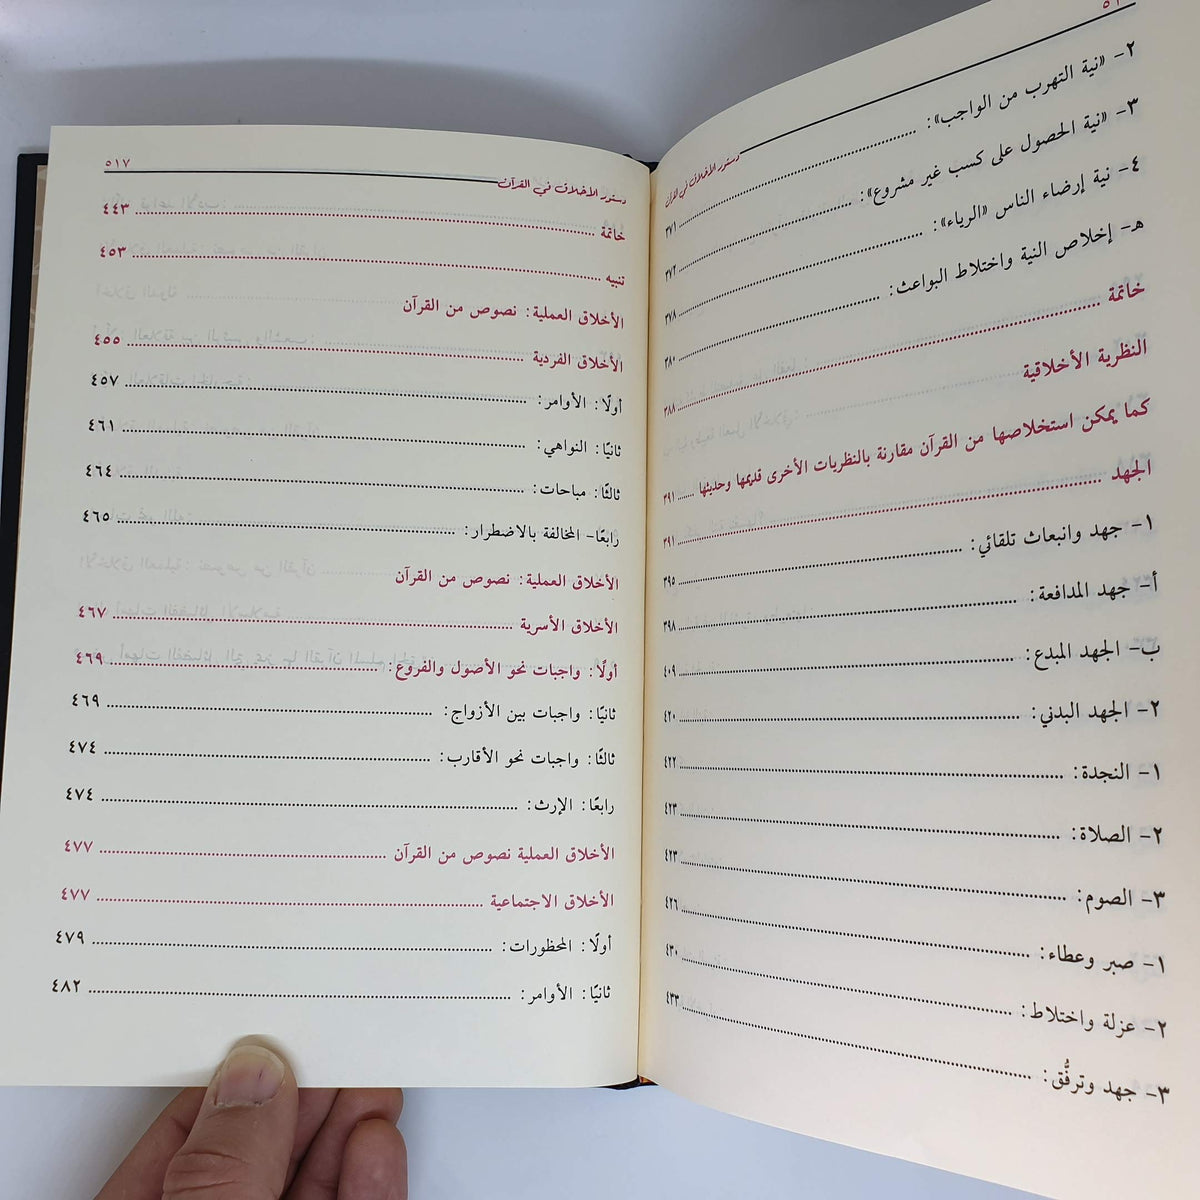 دستور الأخلاق في القرآن
٢- «نية التهرب من الواجب»: ٣٧١
٣- «نية الحصول على كسب غير مشروع»: ٣٧٢
٤- نية إرضاء الناس «الرياء»: ٣٧٨
هـ- إخلاص النية واختلاط البواعث: ٣٨٠
خاتمة ٣٨٨
النظرية الأخلاقية
كما يمكن استخلاصها من القرآن مقارنة بالنظريات الأخرى قديمها وحديثها ٣٩١
الجهد ٣٩١
١- جهد وانبعاث تلقائي: ٣٩٥
أ- جهد المدافعة: ٣٩٨
ب- الجهد المبدع: ٤٠٩
٢- الجهد البدني: ٤٢٠
١- النجدة: ٤٢٢
٢- الصلاة: ٤٢٣
٣- الصوم: ٤٢٣
١- صبر وعطاء: ٤٢٦
٢- عزلة واختلاط: ٤٣٠
٣- جهد وترفُّق: ٤٣٣
دستور الأخلاق في القرآن ٥١٧
خاتمة ٤٤٣
تنبيه ٤٥٣
الأخلاق العملية: نصوص من القرآن
الأخلاق الفردية ٤٥٥
أولًا: الأوامر: ٤٥٧
ثانيًا: النواهي: ٤٦١
ثالثًا: مباحات: ٤٦٤
رابعًا- المخالفة بالاضطرار: ٤٦٥
الأخلاق العملية: نصوص من القرآن
الأخلاق الأسرية ٤٦٧
أولًا: واجبات نحو الأصول والفروع: ٤٦٩
ثانيًا: واجبات بين الأزواج: ٤٦٩
ثالثًا: واجبات نحو الأقارب: ٤٧٤
رابعًا: الإرث: ٤٧٤
الأخلاق العملية نصوص من القرآن ٤٧٧
الأخلاق الاجتماعية ٤٧٧
أولًا: المحظورات: ٤٧٩
ثانيًا: الأوامر: ٤٨٢